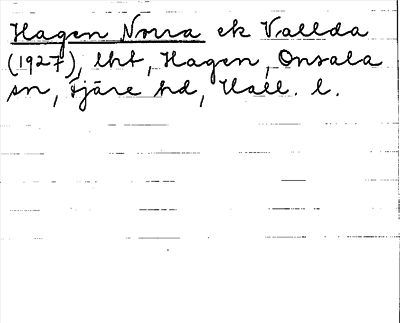 Hagen Norra ek Vallda
(1927), lht, Hagen, Onsala
sn, Fjäre hd, Hall. l.